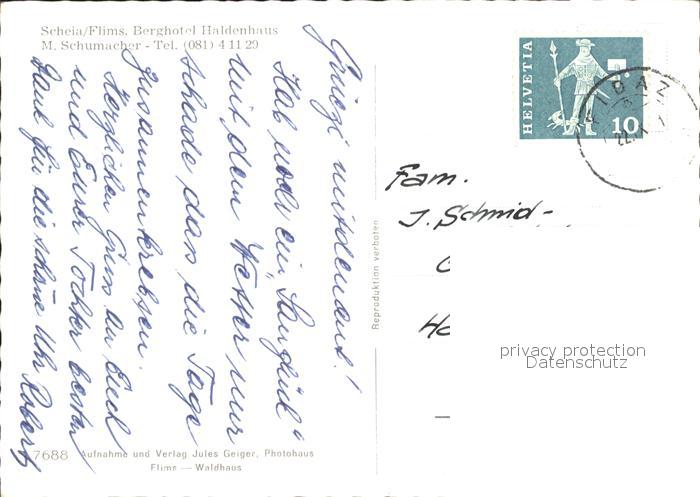 Scheia/Flims. Berghotel Haldenhaus
M. Schumacher - Tel. (081) 4 11 29
Grüezi mitdenand!
Hab noch ein "Saugluck"
mit dem Wetter nur
schade das die Tage
zusammenkrebsen.
Herzlichen Gruss an Euch
und Eurer Tochter besten
Dank für die schöne Uhr Robert
7688 Aufnahme und Verlag Jules Geiger, Photohaus
Flims — Waldhaus
Reproduktion verboten
HELVETIA
10
FIDAZ
Fam.
J. Schmid-
privacy protection
Datenschutz